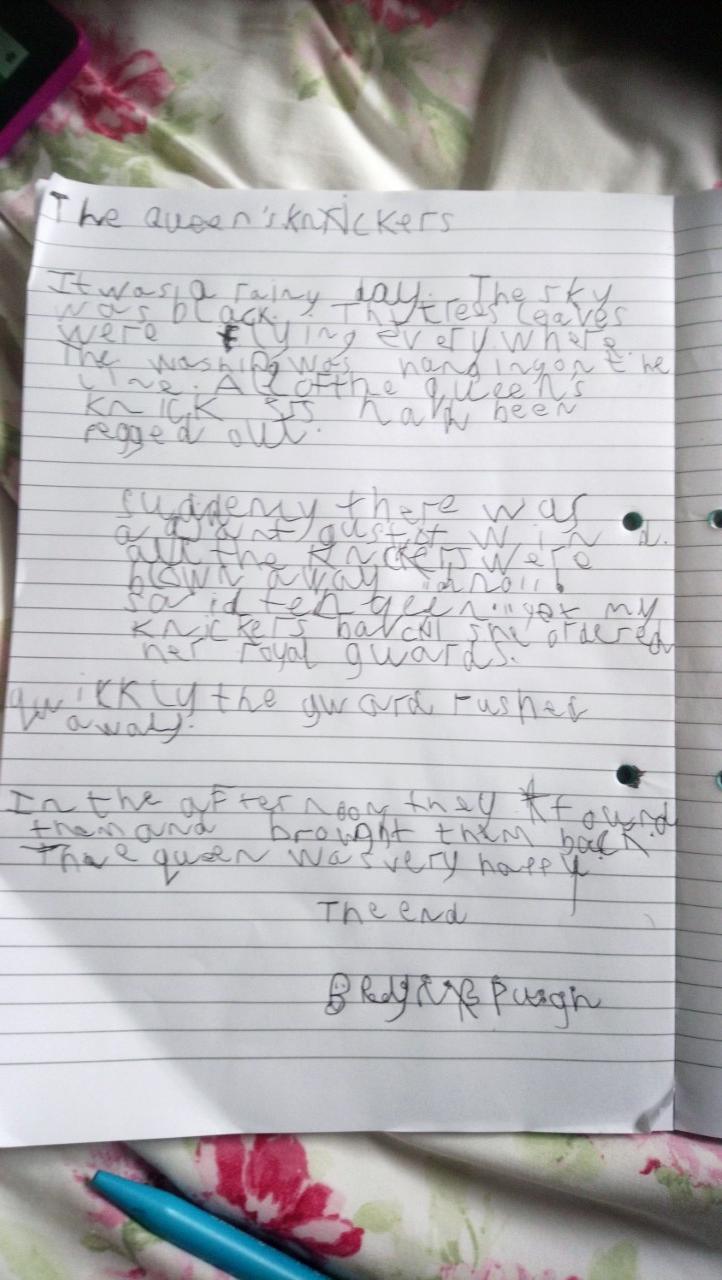 The queen's knickers
It was a rainy day. The sky
was black. The trees leaves
were flying every where.
The washing was hanging on the
line. All of the queen's
knick had been
pegged out.
suddenly there was
a giant gust of wind.
all the knickers were
blown away
said the queen. "get my
knickers back" she ordered
her royal guards.
quikkly the guard rushed
away.
In the afternoon they found
them and brought them back.
The queen was very happy
The end
Pugh